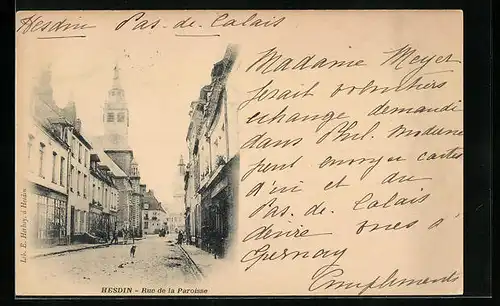 Hesdin Pas-de-Calais
Madame Meyer
ferait volontiers
echange demandé
dans Phil. Moderne
peut envoyer cartes
d'ici et du
Pas-de-Calais
désire vues d'
Epernay
Compliments
Lib. E. Herbay, à Hesdin
HESDIN - Rue de la Paroisse